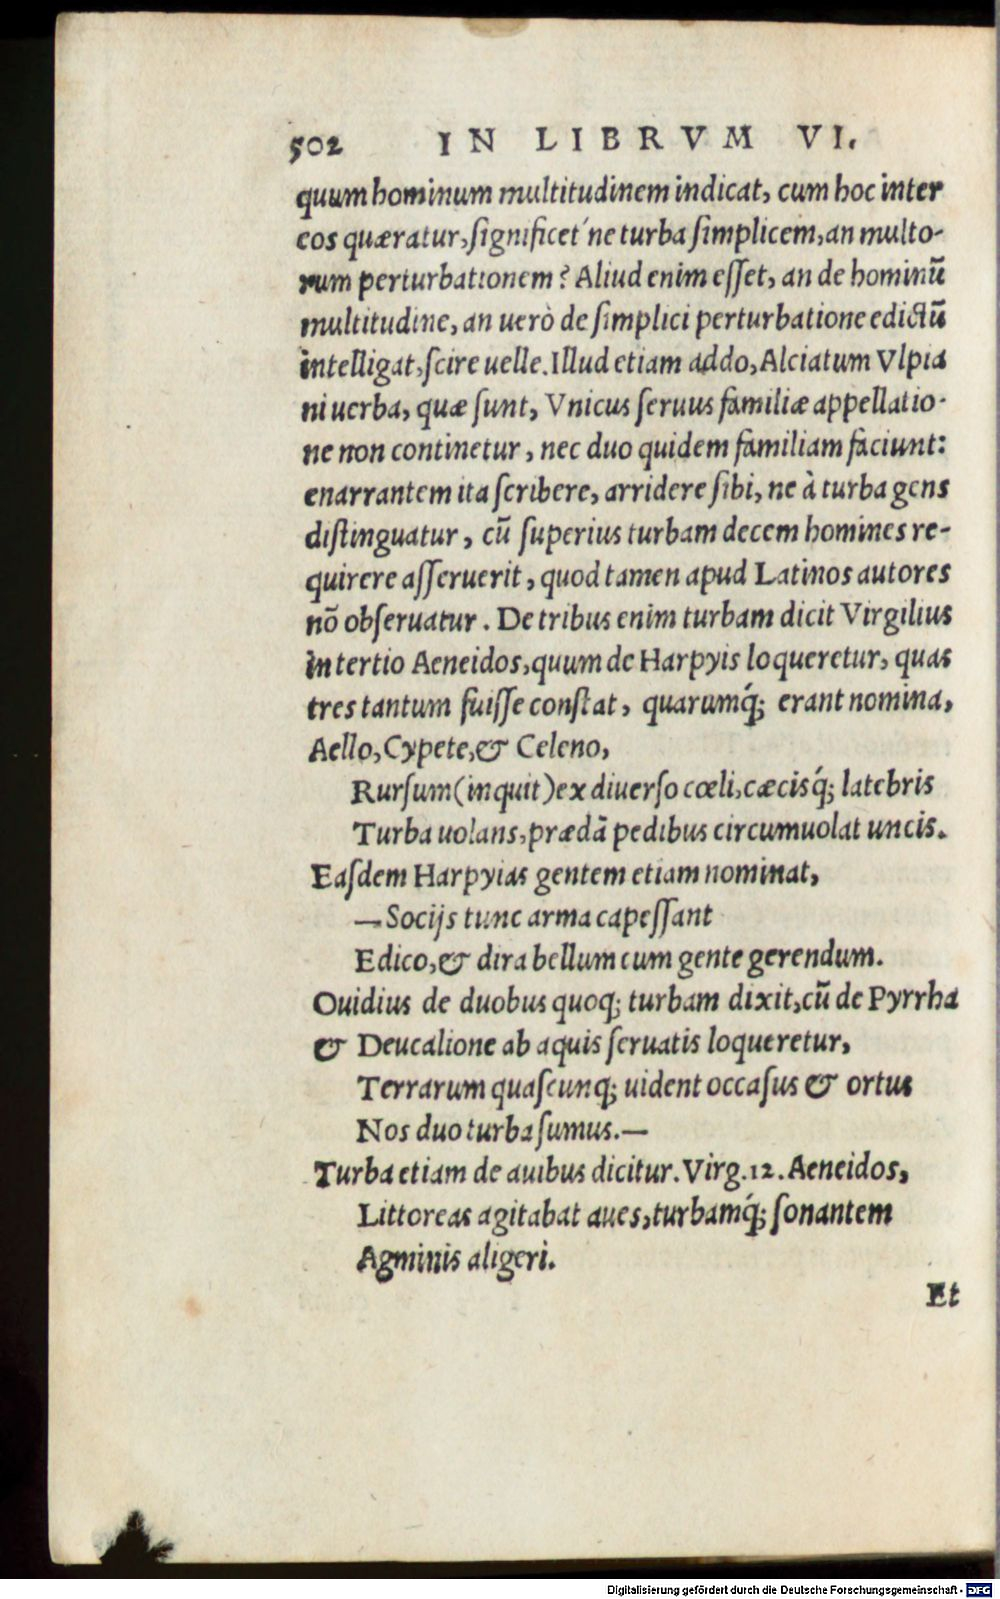 502 IN LIBRVM VI.
quum hominum multitudinem indicat, cum hoc inter
eos quæratur, significet´ne turba simplicem, an multo-
rum perturbationem? Aliud enim esset, an de hominũ
multitudine, an uerò de simplici perturbatione edictũ
intelligat, scire uelle. Illud etiam addo, Alciatum Vlpia
ni uerba, quæ sunt, Vnicus seruus familiæ appellatio-
ne non continetur, nec duo quidem familiam faciunt:
enarrantem ita scribere, arridere sibi, ne à turba gens
distinguatur, cũ superius turbam decem homines re-
quirere asseruerit, quod tamen apud Latinos autores
nõ obseruatur. De tribus enim turbam dicit Virgilius
in tertio Aeneidos, quum de Harpyis loqueretur, quas
tres tantum fuisse constat, quarumq́; erant nomina,
Aello, Cypete, & Celeno,
Rursum (inquit) ex diuerso cœli, cæcisq́; latebris
Turba uolans, prædã pedibus circumuolat uncis.
Easdem Harpyias gentem etiam nominat,
— Socijs tunc arma capessant
Edico, & dira bellum cum gente gerendum.
Ouidius de duobus quoq; turbam dixit, cũ de Pyrrha
& Deucalione ab aquis seruatis loqueretur,
Terrarum quascunq; uident occasus & ortus
Nos duo turba sumus.—
Turba etiam de auibus dicitur. Virg. 12. Aeneidos,
Littoreas agitabat aues, turbamq́; sonantem
Agminis aligeri.
Et
Digitalisierung gefördert durch die Deutsche Forschungsgemeinschaft - DFG